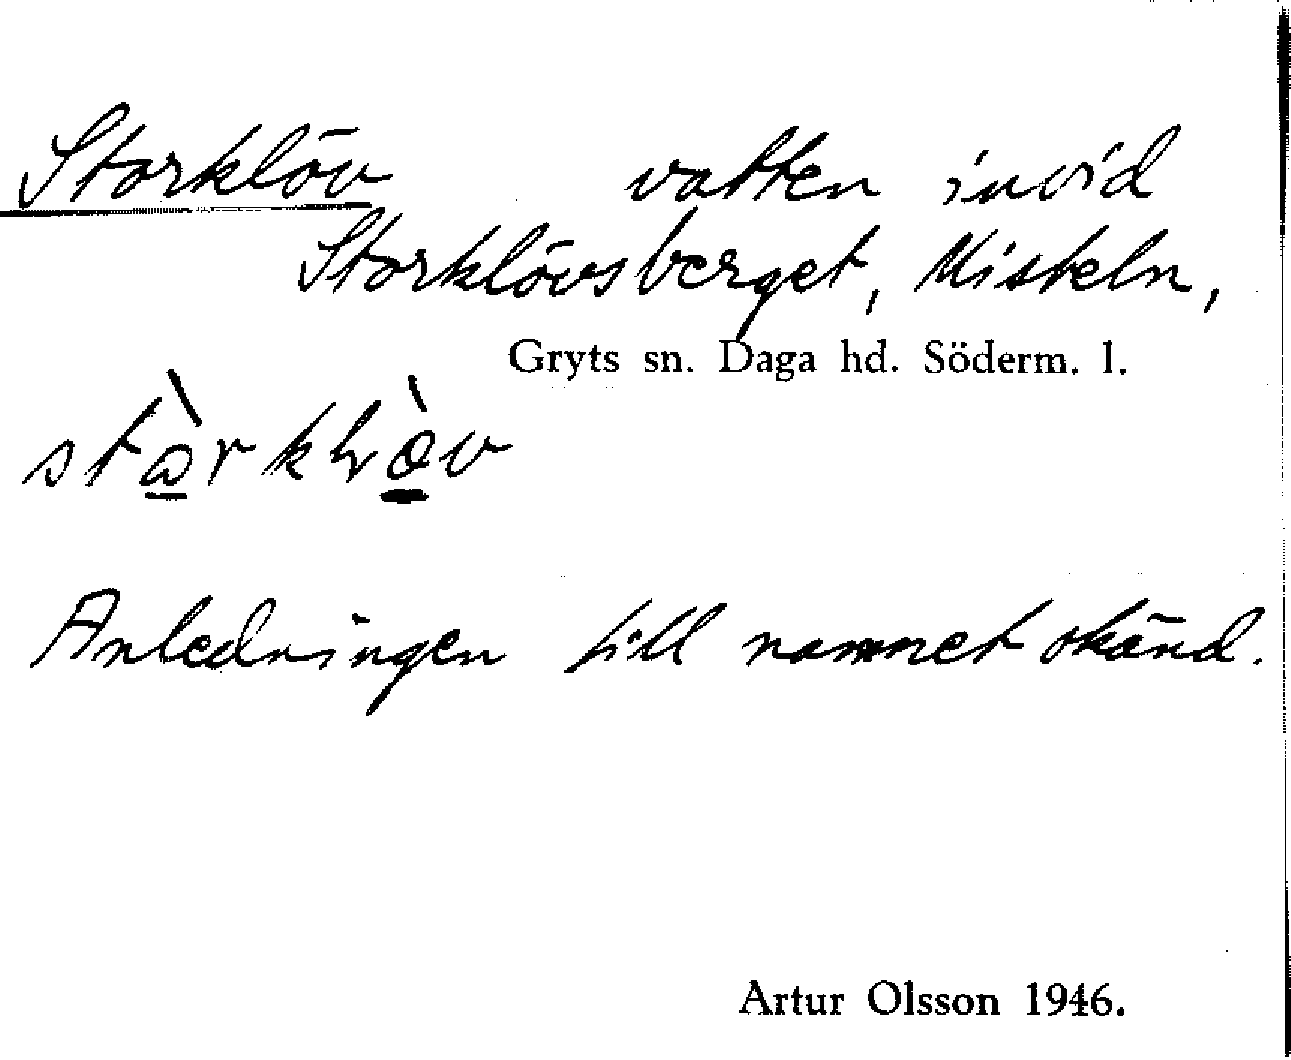 Storklöv vatten invid
Storklövsberget, Misteln,
Gryts sn. Daga hd. Söderm. l.
Anledningen till namnet okänd.
Artur Olsson 1946.